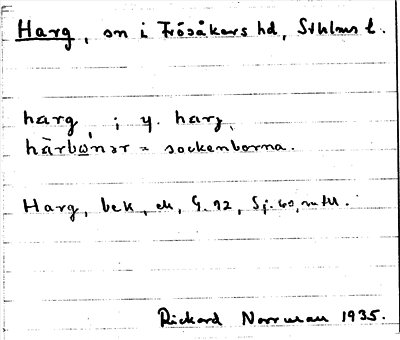 Harg, sn i Frösåkers hd, Sthlms l.
harg, i y. harj,
hàrbωnər = sockenborna.
Harg, bek, ek, G. 92, Sj. 60, m fl.
Rickard Norrman 1935.